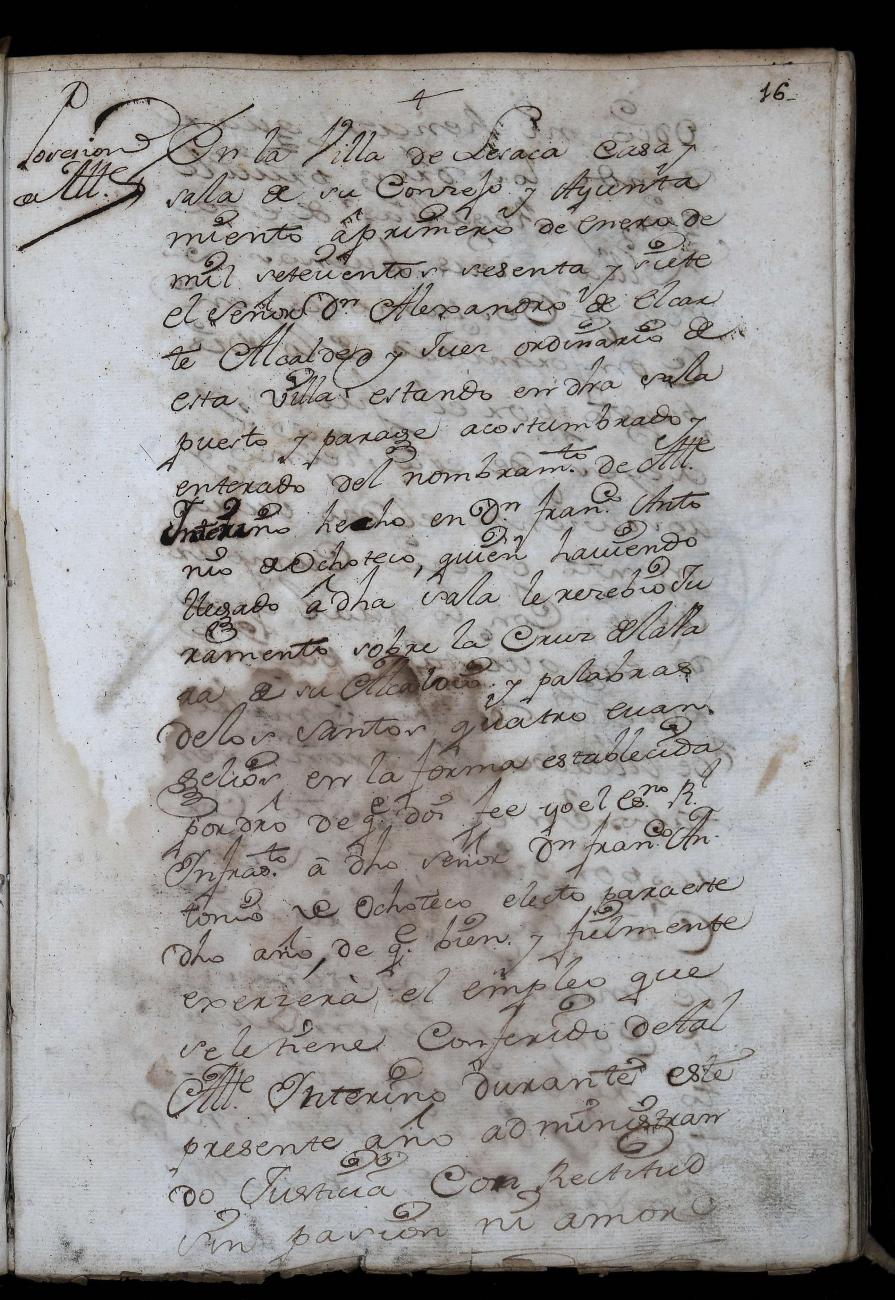 16
Posesion
a Alte
En la Villa de Lesaca Casa y
sala de su Conzejo y Ayunta
miento â primero de enero de
mil setecientos sesenta y siete
el señor Dn Alexandro de Elcar
te Alcalde y Juez ordinario de
esta villa estando en dha sala
puesto y parage acostumbrado y
enterado del nombramto de Alte
Interino hecho en Dn Franco Anto
nio de Ochoteco, quien haviendo
llegado â dha sala le rezebio Ju
ramento sobre la Cruz de la Va
ra de su Alcaldia y palabras
de los santos quatro evan
gelios en la forma establecida
por dro de qe doi fee yo el esno Rl
Infrato â dho señor Dn Franco An
tonio de Ochoteco electo para este
dho año, de qe bien y fielmente
exerzerà el empleo que
se le tiene Conferido de tal
Alte Interino durante este
presente año administran
do Justicia Con Rectitud
sin pasion ni amor